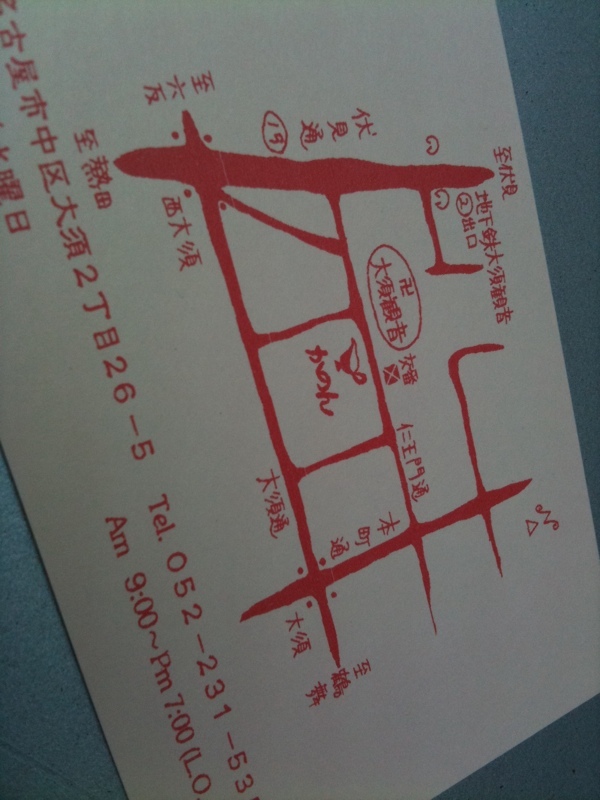 至伏見
地下鉄大須観音
②出口
伏見通
19
至六反
至熱田
西大須
卍
大須観音
交番
仁王門通
かのん
本町通
大須通
大須
至鶴舞
N
古屋市中区大須2丁目26-5 Tel. 052-231-53
曜日 Am 9:00~Pm7:00(L.O.